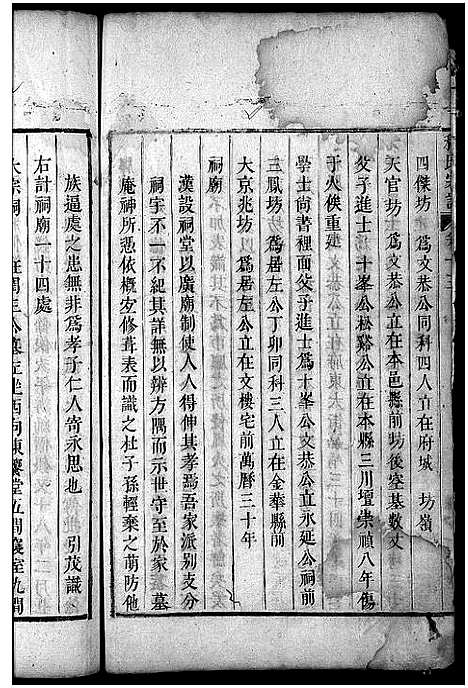 四傑坊　爲文恭公同科四人立在府城　坊嶺
天官坊　爲文恭公立在本邑縣前坊後空基數丈
父子進士　爲十峯公松谿公立在本縣三川壇崇禎八年傷
于火候重建
學士尚書裡面父子進士爲十峯公文恭公立永延公祠前
三鳳坊　爲居左公丁卯同科三人立在金華縣前
大京兆坊　以居左公立在文樓宅前萬曆三十年
祠廟
漢設祠堂以廣廟制使人人得伸其孝爲吾家派別支分
祠宇不一不紀其詳無以辨方隅而示世守至於家　墓
庵神所憑依概宏修葺表而識之杜子孫輕棄之萌防他
族逼處之患無非爲孝子仁人啻永思也　　引茂識
右計祠廟一十四處
大宗祠　在　坐西向東饗堂五間寢室九間